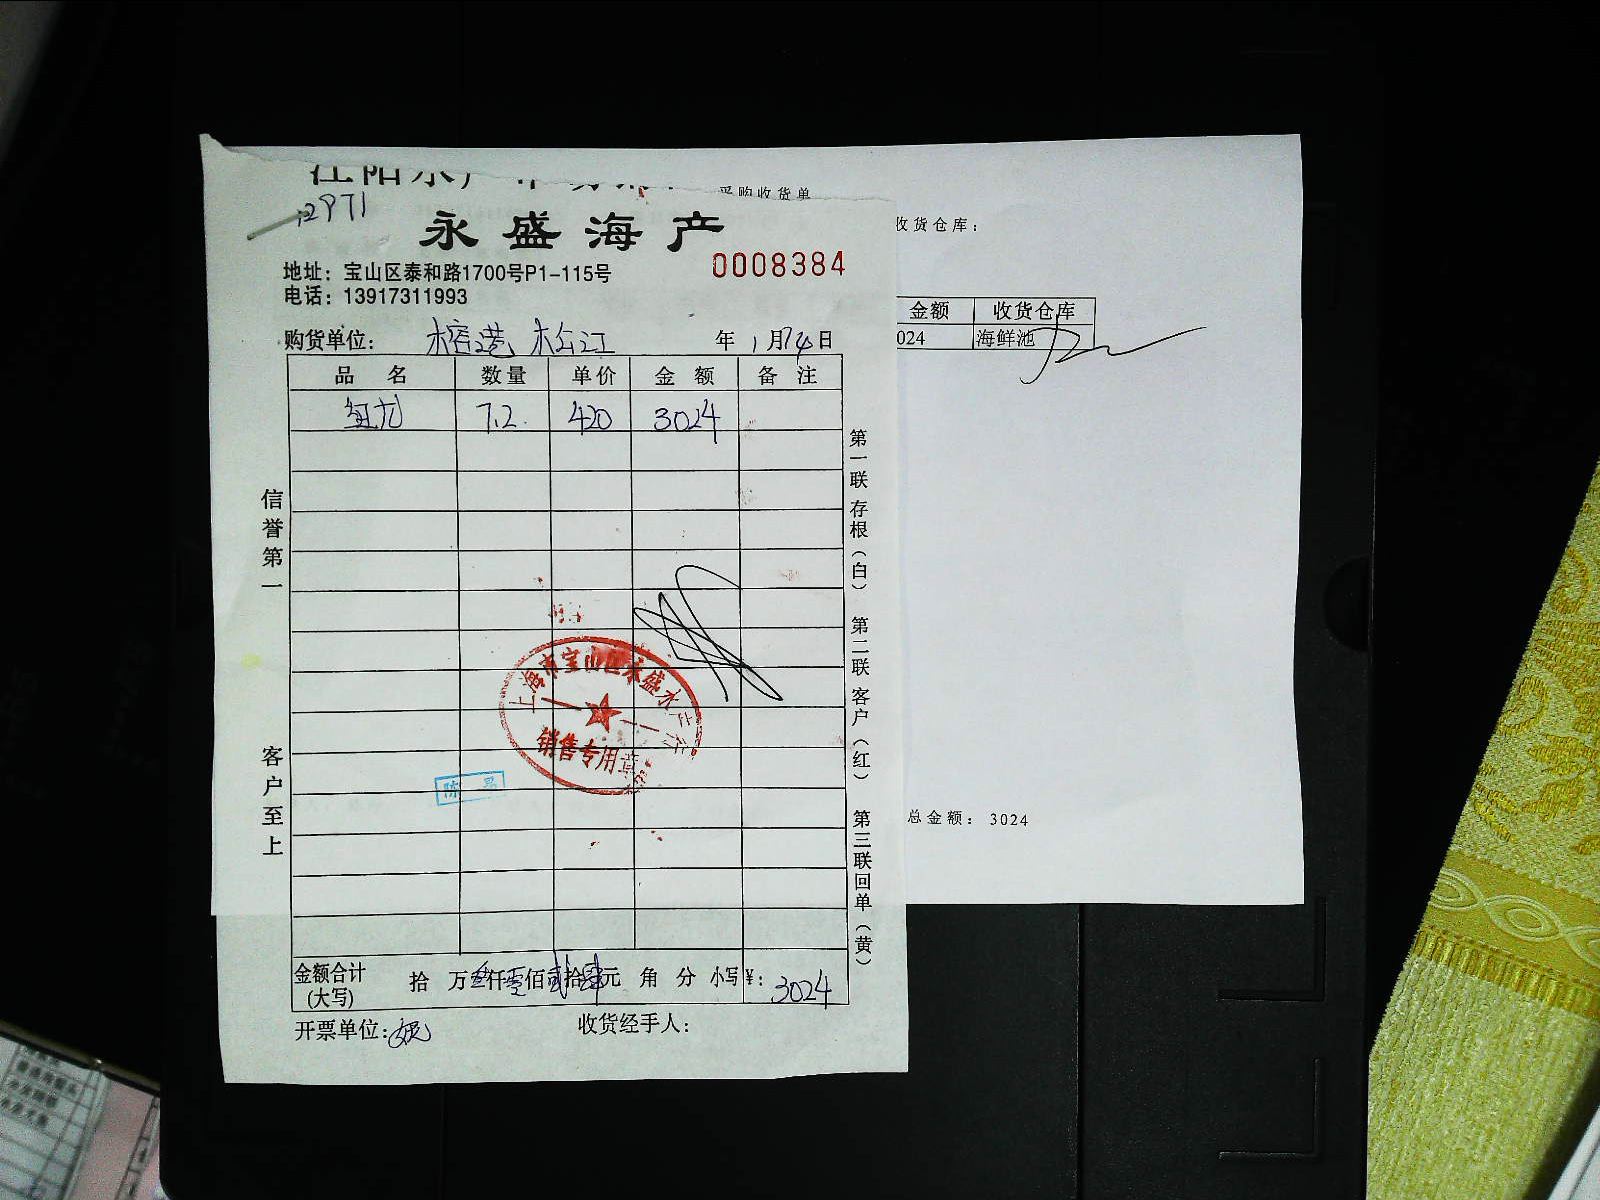 2971
永盛海产
0008384
地址：宝山区泰和路1700号P1-115号
电话：13917311993
购货单位： 榕港 松江 年 1 月 14 日
品名 数量 单价 金额 备注
红龙 7.2 420 3024
信誉第一
客户至上
第一联 存根（白） 第二联 客户（红） 第三联 回单（黄）
上海市宝山区永盛水产行
销售专用章
金额合计（大写） 拾 万 叁 仟 零 佰 贰 拾 肆 元 角 分 小写¥： 3024
开票单位： 收货经手人：
采购收货单
收货仓库：
金额 收货仓库
024 海鲜池
总金额： 3024